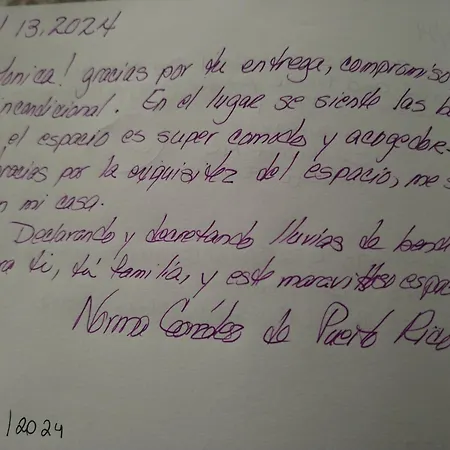 13, 2024
gracias por tu entrega, compromiso
incondicional. En el lugar se siente las
el espacio es super comodo y acogedor
gracias por la exquisitez del espacio, me
mi casa.
Declarando y decretando lluvias de
ti, tú familia, y este maravilloso
Norma González de Puerto Rico
/2024